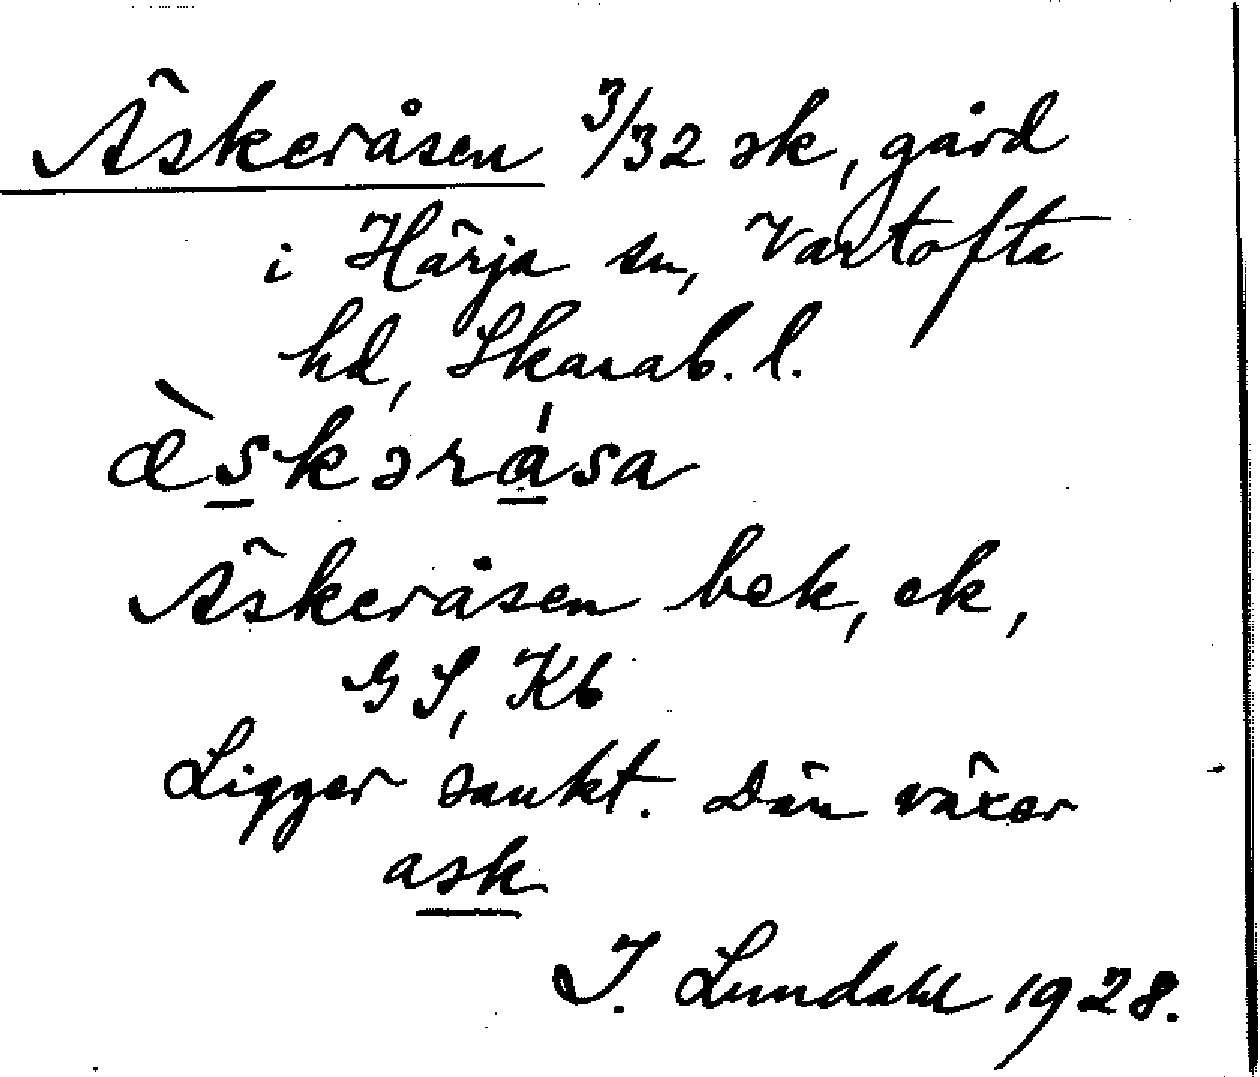 Äskeråsen 3/32 sk, gård
i Härja sn, Vartofta
hd, Skarab. l.
æ̀skəråsa
Äskeråsen bek, ek,
GS, Kb
Ligger sankt. Där växer
ask
I. Lundahl 1928.